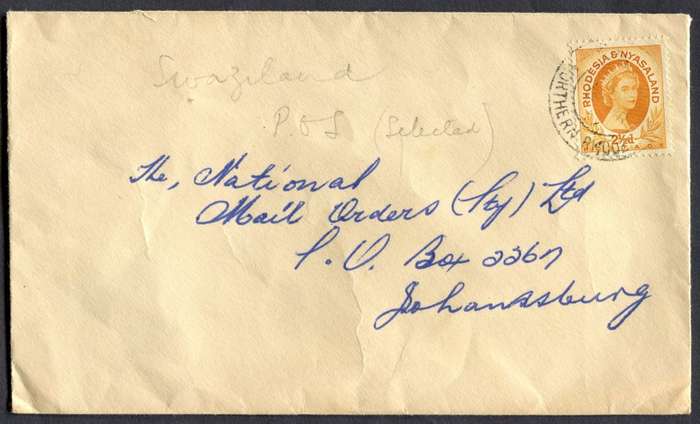 Swaziland
P.O.S (Selected)
RHODESIA & NYASALAND
2½d
POSTAGE
NORTHERN RHOD
The, National
Mail Orders (Pty) Ltd
P. O. Box 2267
Johannsburg